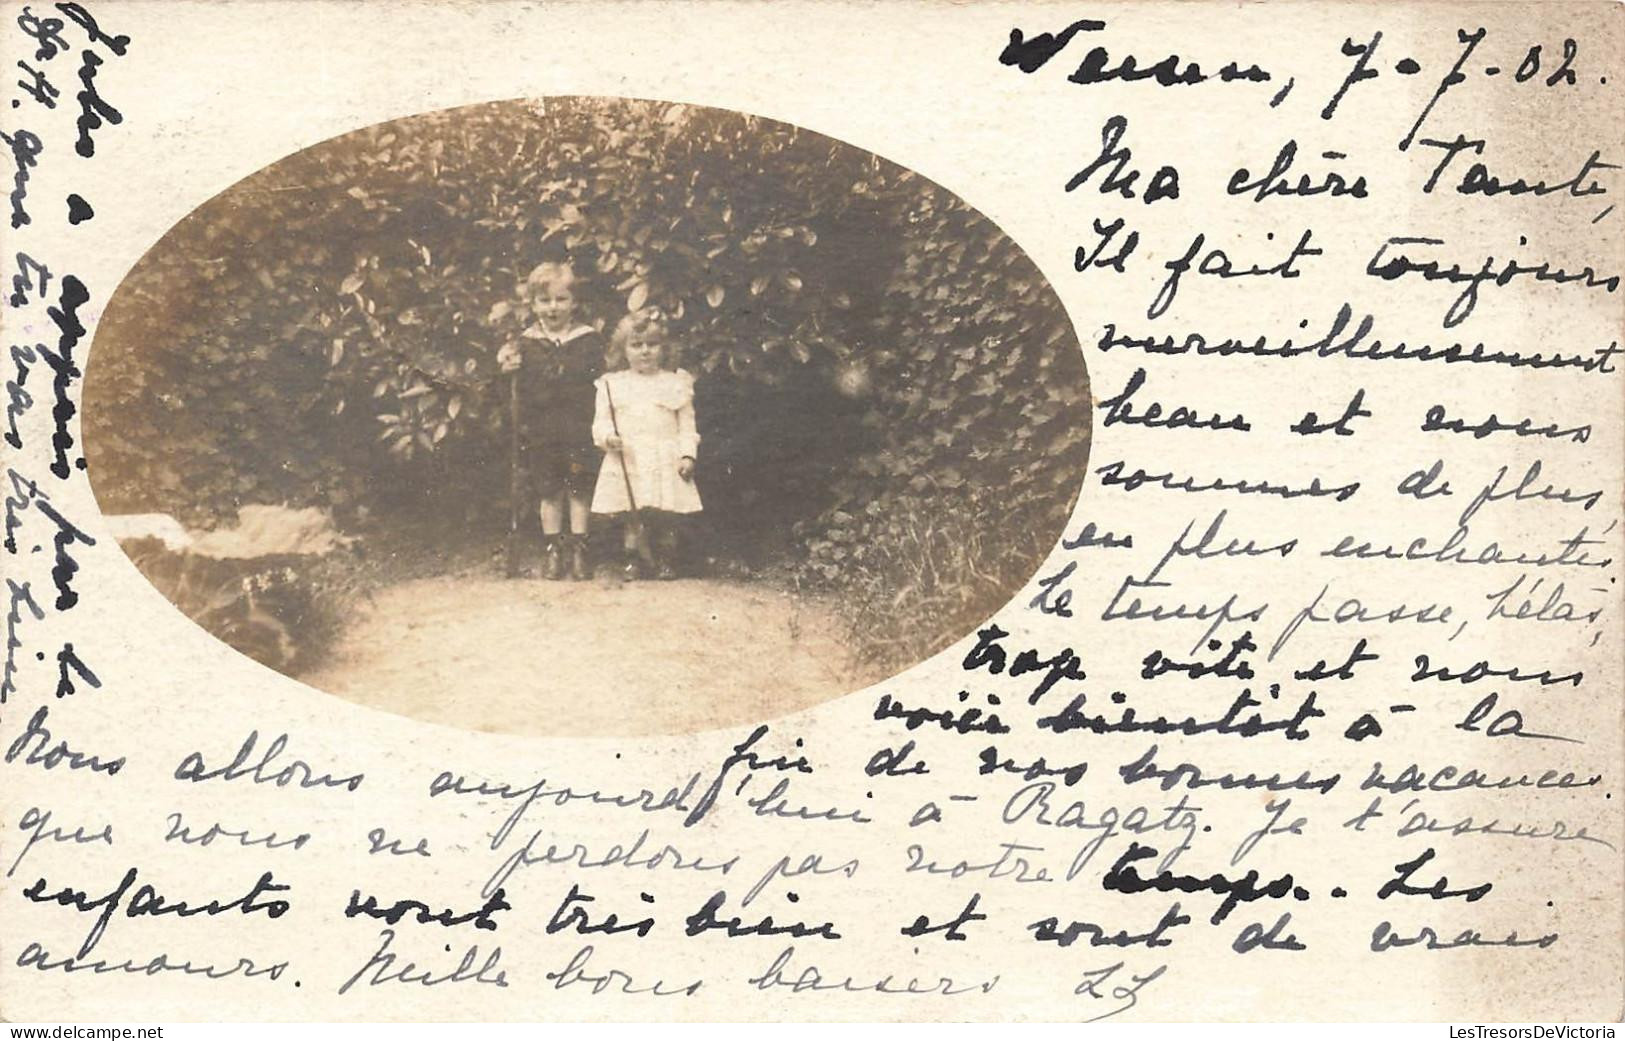 Weesen, 7-7-02.
Ma chère Tante,
Il fait toujours
merveilleusement
beau et nous
sommes de plus
en plus enchantés.
Le temps passe, hélas,
trop vite et nous
voici bientôt à la
fin de nos bonnes vacances.
Nous allons aujourd'hui à Ragatz. Je t'assure
que nous ne perdons pas notre temps. Les
enfants vont très bien et sont de vrais
amours. Mille bons baisers LL
Jules a appris par le
Dr H. que tu vas très bien
LesTresorsDeVictoria
www.delcampe.net